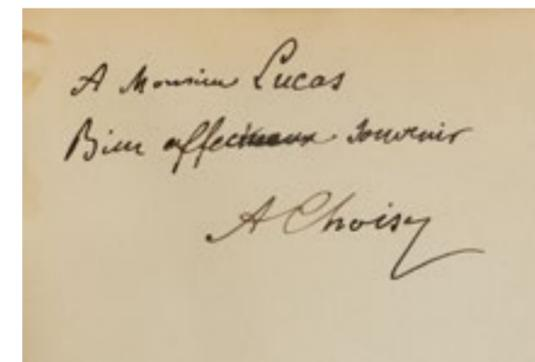 A Monsieur Lucas
Bien affectueux souvenir
A Choisy